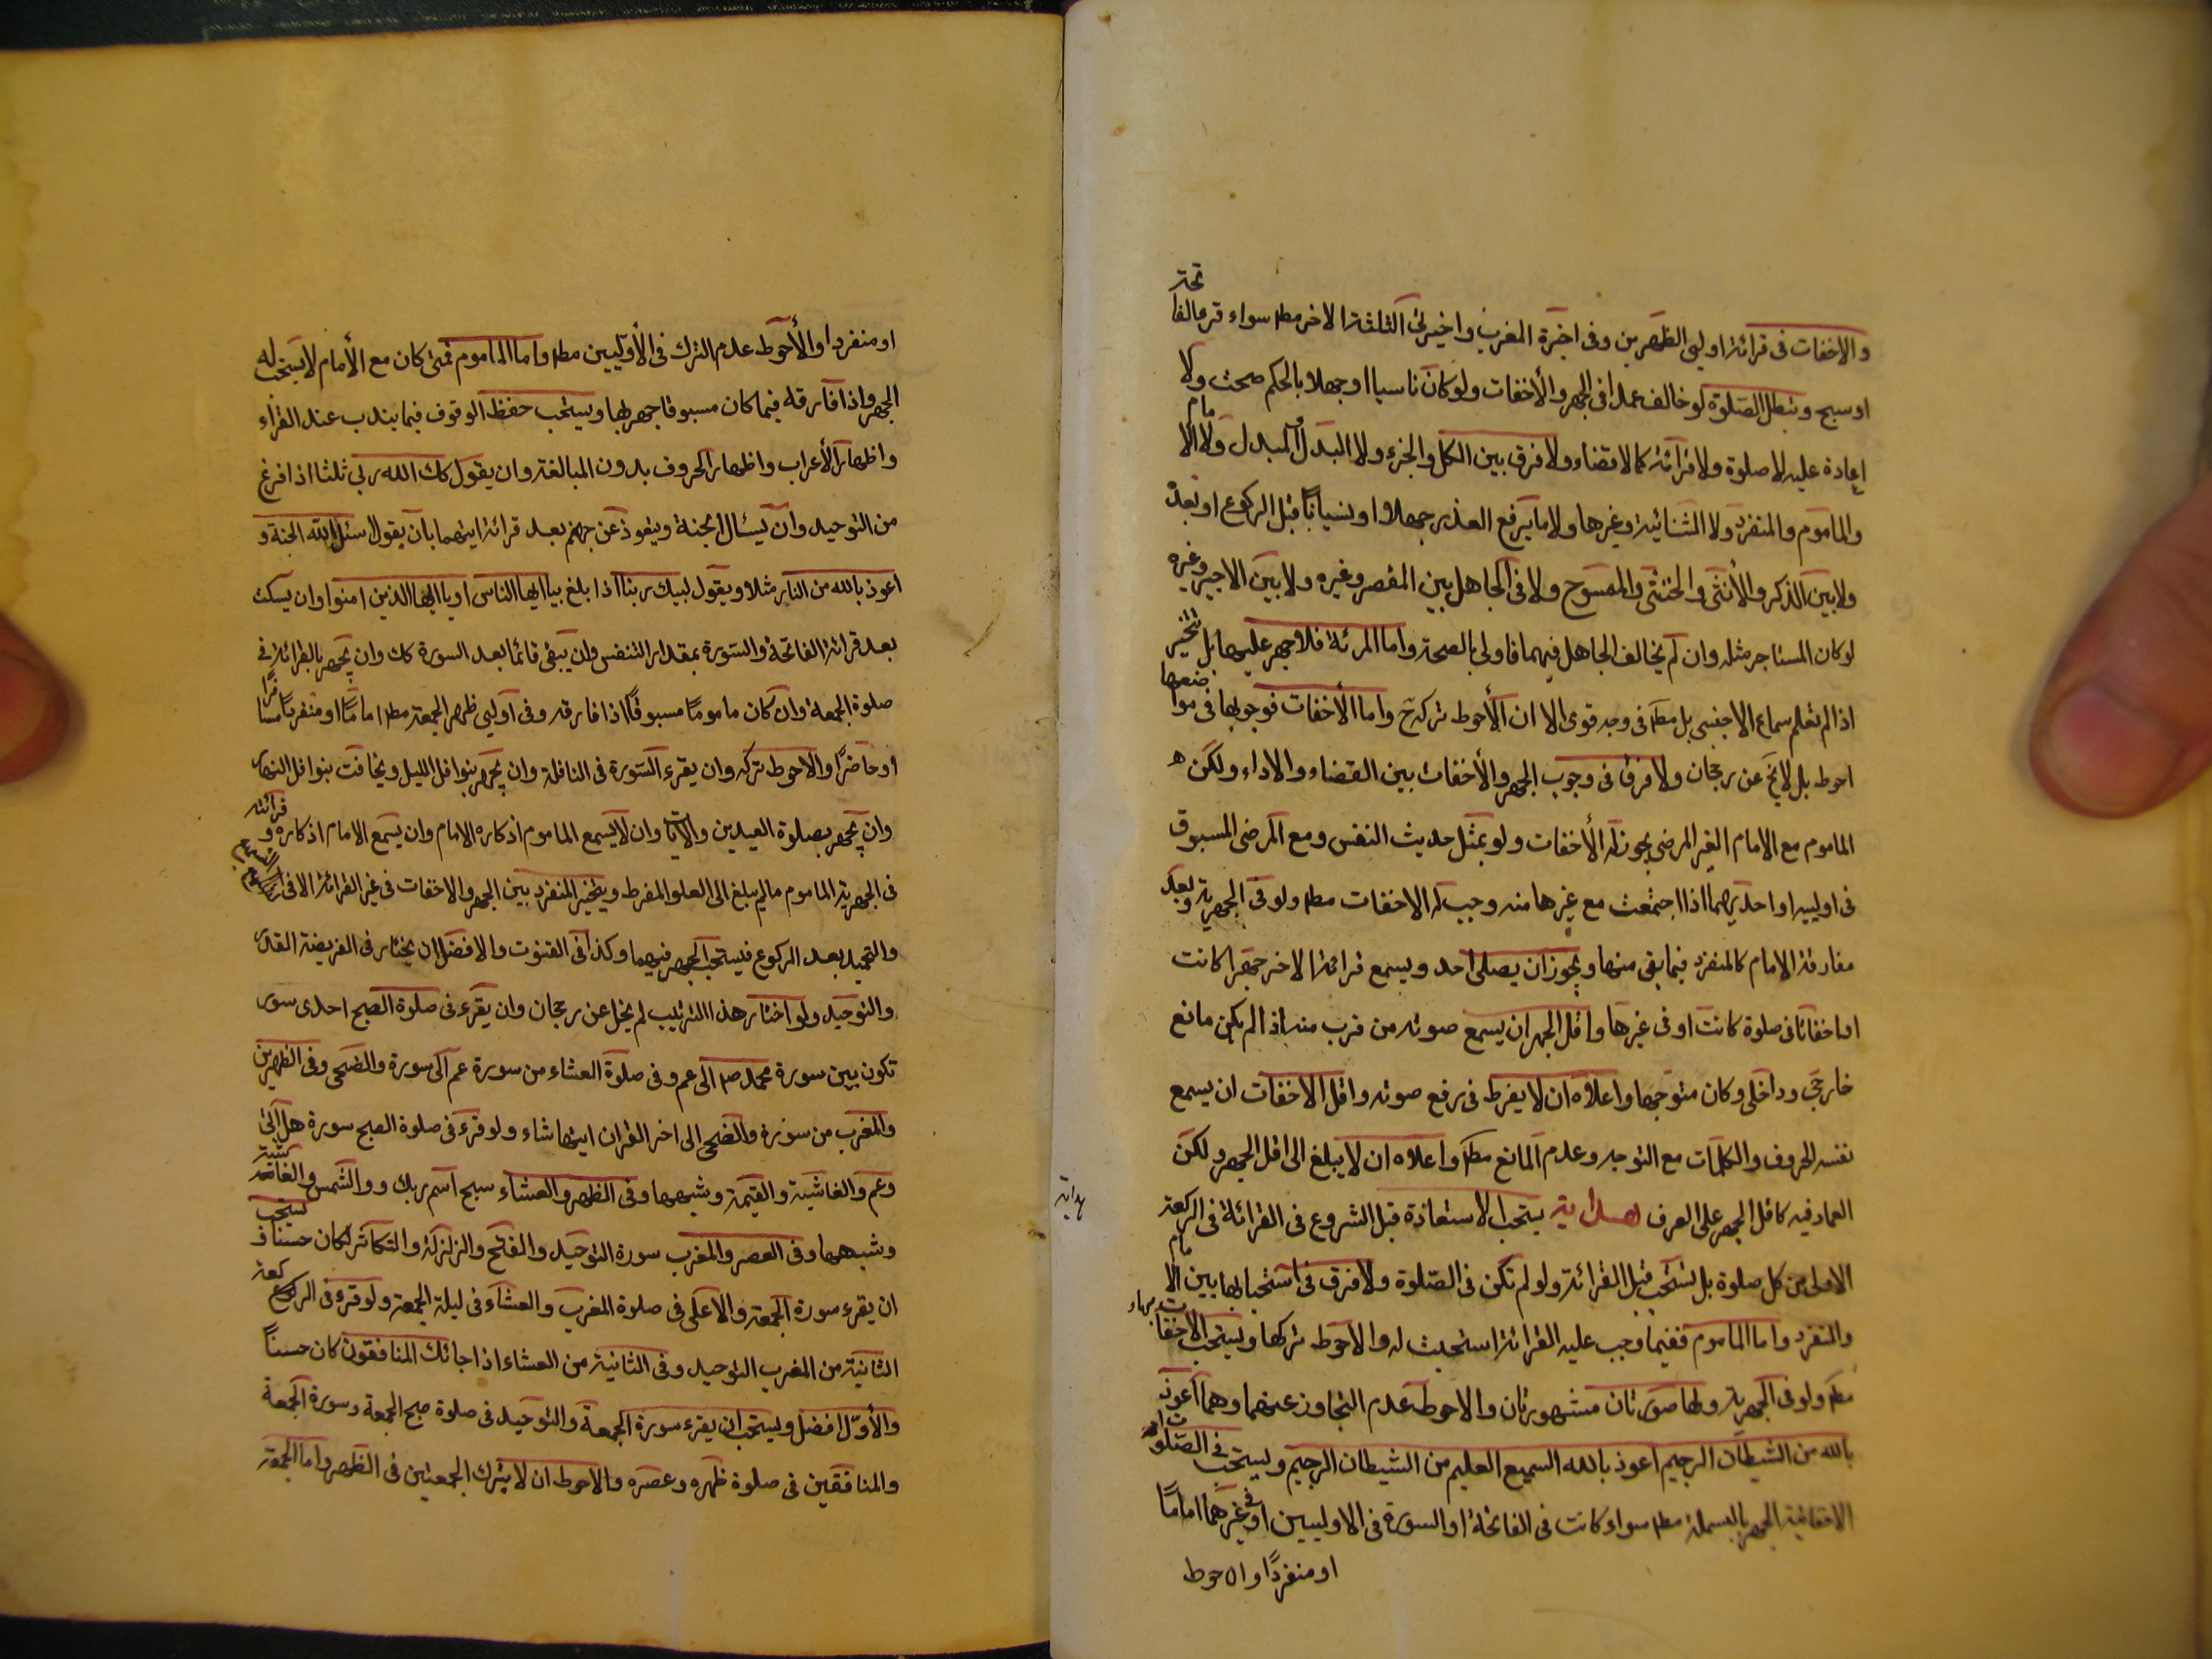 والاخفات فى قرائة اوليى الظهرين وفى اخيرة المغرب واخيرتى الثلثة الاخر مطم سواء قرء الفاتحة
او سبح وتبطل الصلوة لو خالف عمدا فى الجهر والأخفات ولو كان ناسيا او جهلا بالحكم صحت ولا
اعادة عليه لا صلوة ولا قرائة كما لا قضاء ولا فرق بين الكل والجزء ولا البدل والمبدل ولا الامام
والماموم والمنفرد ولا الثنائية وغيرها ولا ما يرفع العذر جهلا او نسيانا قبل الركوع او بعده
ولا بين الذكر والأنثى والخنثى والممسوح ولا فى الجاهل بين المقصر وغيره ولا بين الاجير وغيره
لو كان المستاجر مثله وان لم يخالف الجاهل فيهما فاولى بالصحة واما المرئة فلا جهر عليها بل تتخير
اذا لم تعلم سماع الاجنبى بل مطم فى وجه قوى الا ان الأحوط تركه ح واما الأخفات فوجوبها فى مواضعها
احوط بل لا يخ عن رجحان ولا فرق فى وجوب الجهر والأخفات بين القضاء والاداء ولكن
الماموم مع الامام الغير المرضى يجوز له الأخفات ولو بمثل حديث النفس ومع المرضى المسبوق
فى اولييه او احديهما اذا اجتمعت مع غيرها منه وجب له الاخفات مطم ولو فى الجهرية وبعد
مفارقة الامام كالمنفرد فيما بقى منها ويجوز ان يصلى احد ويسمع قرائة الاخر جهرا كانت
او اخفاتا فى صلوة كانت او فى غيرها واقل الجهر ان يسمع صوته من قرب منه اذا لم يكن مانع
خارجى وداخلى وكان متوجها واعلاه ان لا يفرط فى رفع صوته واقل الاخفات ان يسمع
نفسه الحروف والكلمات مع التوجه وعدم المانع مطم واعلاه ان لا يبلغ الى اقل الجهر ولكن
العماد فيه كاقل الجهر على العرف هداية يستحب الاستعاذة قبل الشروع فى القرائة فى الركعة
هداية
الاولى من كل صلوة بل تستحب قبل القرائة ولو لم تكن فى الصلوة ولا فرق فى استحبابها بين الامام
والمنفرد واما الماموم ففيما وجب عليه القرائة استحبت له والاحوط تركها ويستحب الاخفات بها
مطم ولو فى الجهرية ولها صورتان مشهورتان والاحوط عدم التجاوز عنهما وهما اعوذ
بالله من الشيطان الرجيم اعوذ بالله السميع العليم من الشيطان الرجيم ويستحب فى الصلوات
الاخفاتية الجهر بالبسملة مطم سواء كانت فى الفاتحة او السورة فى الاوليين او فى غيرهما اماما
او منفردًا والاحوط
او منفردا والأحوط عدم الترك فى الأوليين مطم واما الماموم فمتى كان مع الأمام لا يستحب له
الجهر واذا فارقه فيما كان مسبوقا جهر بها ويستحب حفظ الوقوف فيما يندب عند القراء
واظهار الأعراب واظهار الحروف بدون المبالغة وان يقول كك الله ربى ثلثا اذا فرغ
من التوحيد وان يسئال الجنة ويتعوذ عن جهنم بعد قرائة ايتهما بان يقول اسئل الله الجنة و
اعوذ بالله من النار مثلا ويقول لبيك ربنا اذا بلغ بيا ايها الناس او يا ايها الذين امنوا وان يسكت
بعد قرائة الفاتحة والسورة بمقدار التنفس وان يبقى قائما بعد السورة كك وان يجهر بالقرائة فى
صلوة الجمعة وان كان ماموما مسبوقًا اذا فارقه وفى اوليى ظهر الجمعة مطم اماما او منفردا مسافرا
او حاضرًا والاحوط تركه وان يقرء السورة فى النافلة وان يجهر بنوافل الليل ويخافت بنوافل النهار
وان يجهر بصلوة العيدين والايات وان لا يسمع الماموم اذكاره الامام وان يسمع الامام اذكاره وقرائته
فى الجهرية الماموم ما لم يبلغ الى العلو المفرط ويتخير المنفرد بين الجهر والاخفات فى غير القرائة الا فى
والتحميد بعد الركوع فيستحب الجهر فيهما وكذا فى القنوت والافضل ان يختار فى الفريضة القدر
والتوحيد ولو اختار هذا الترتيب لم يخل عن رجحان وان يقرء فى صلوة الصبح احدى سور
تكون بين سورة محمد ص الى عم وفى صلوة العشاء من سورة عم الى سورة والضحى وفى الظهرين
والمغرب من سورة والضحى الى اخر القران ايتها شاء ولو قرء فى صلوة الصبح سورة هل اتى
وعم والغاشية والقيمة وشبهها وفى الظهر والعشاء سبح اسم ربك و والشمس والغاشية
وشبهها وفى العصر والمغرب سورة التوحيد والفتح والزلزلة والتكاثر لكان حسنا ويستحب
ان يقرء سورة الجمعة والاعلى فى صلوة المغرب والعشاء فى ليلة الجمعة ولو قرء فى الركعة
الثانية من المغرب التوحيد وفى الثانية من العشاء اذا جائك المنافقون كان حسناً
والأوّل افضل ويستحب ان يقرء سورة الجمعة والتوحيد فى صلوة صبح الجمعة وسورة الجمعة
والمنافقين فى صلوة ظهره وعصره والاحوط ان لا يترك الجمعتين فى الظهر واما الجمعة